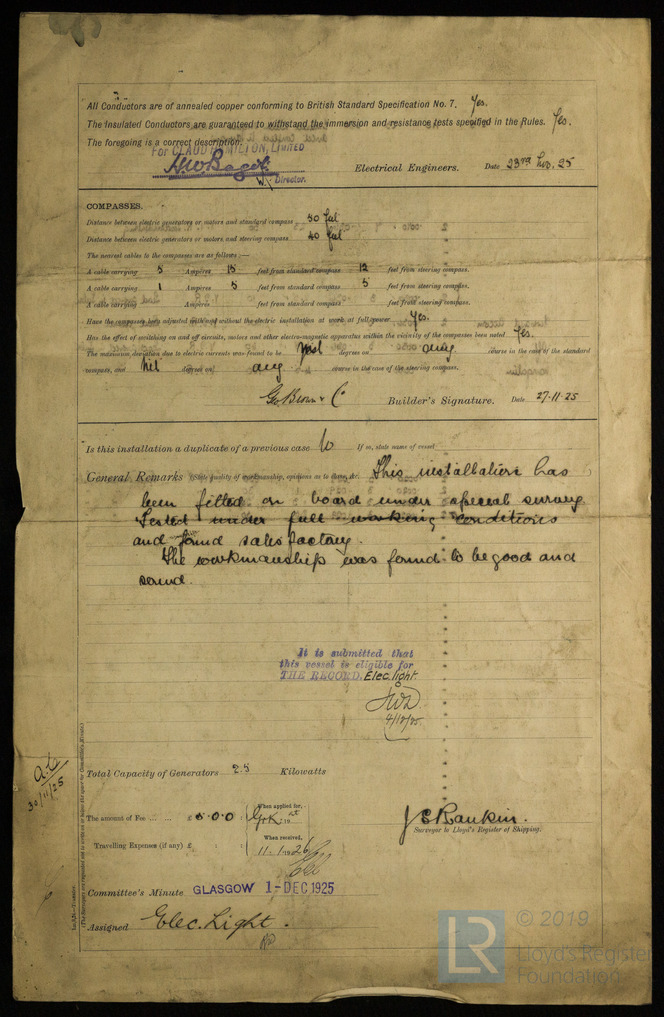 All Conductors are of annealed copper conforming to British Standard Specification No. 7. Yes.
The Insulated Conductors are guaranteed to withstand the immersion and resistance tests specified in the Rules. Yes.
The foregoing is a correct description.
For CLAUD HAMILTON, LIMITED
Director. Electrical Engineers. Date 23rd Nov. 25
COMPASSES.
Distance between electric generators or motors and standard compass 50 feet
Distance between electric generators or motors and steering compass 40 feet
The nearest cables to the compasses are as follows:—
A cable carrying 5 Ampères 15 feet from standard compass 12 feet from steering compass.
A cable carrying 1 Ampères 5 feet from standard compass 5 feet from steering compass.
A cable carrying Ampères feet from standard compass feet from steering compass.
Have the compasses been adjusted with and without the electric installation at work at full power Yes.
Has the effect of switching on and off circuits, motors and other electro-magnetic apparatus within the vicinity of the compasses been noted Yes.
The maximum deviation due to electric currents was found to be Nil degrees on any course in the case of the standard
compass, and Nil degrees on any course in the case of the steering compass.
Geo. Brown & Co Builder's Signature. Date 27.11.25
Is this installation a duplicate of a previous case No If so, state name of vessel
General Remarks (State quality of workmanship, opinions as to class, &c. This installation has
been fitted on board under special survey.
Tested under full working conditions
and found satisfactory.
The workmanship was found to be good and
sound.
It is submitted that
this vessel is eligible for
THE RECORD. Elec. light.
4/12/25
Total Capacity of Generators 2.5 Kilowatts
The amount of Fee ... ... £ 5.0.0 When applied for,
J E Rankin.
Surveyor to Lloyd's Register of Shipping.
Travelling Expenses (if any) £ When received,
11.1.1926
30/11/25
Committee's Minute GLASGOW 1-DEC 1925
Assigned Elec. Light.
LR © 2019
Lloyd's Register
Foundation